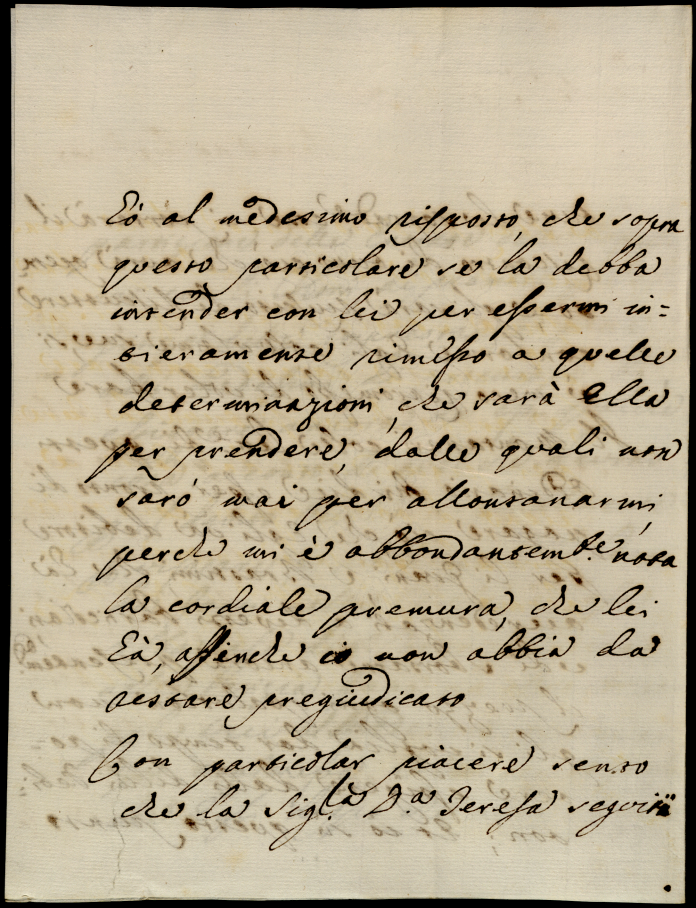 Hò al medesimo risposto, che sopra
questo particolare se la debba
intender con lei per essermi in=
tieramente rimesso a quelle
determinazioni, che sarà Ella
per prendere, dalle quali non
sarò mai per allontanarmi,
perche mi è abbondantem.te nota
la cordiale premura, che lei
hà, affinche io non abbia da
restare pregiudicato
Con particolar piacere sento
che la Sig.la D.a Teresa seguiti